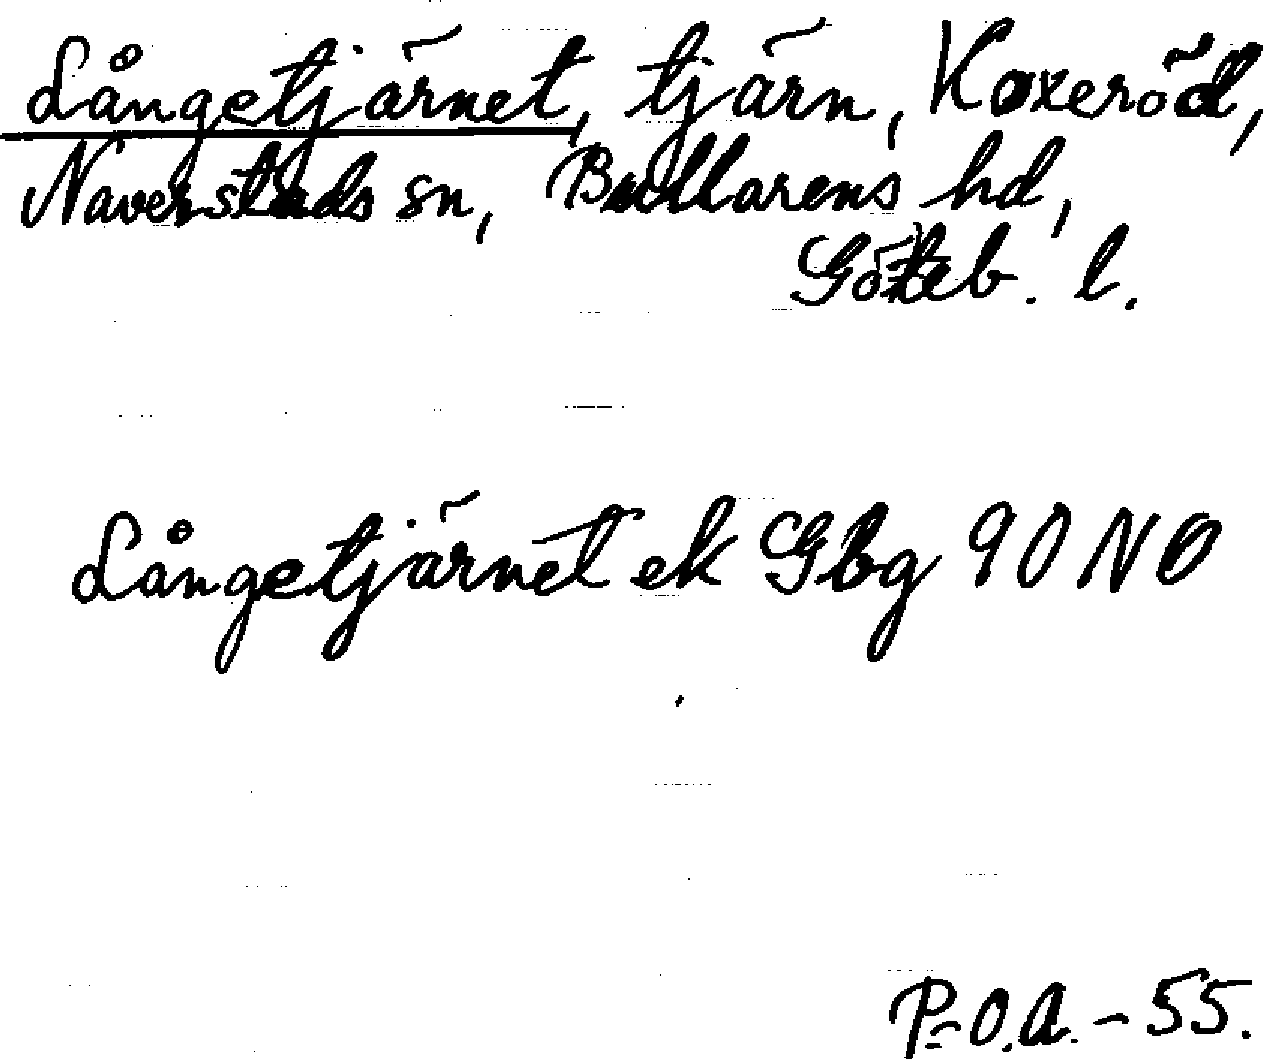 Långetjärnet, tjärn, Koxeröd,
Naverstads sn, Bullarens hd,
Göteb. l.
Långetjärnet ek Gbg 90 NO
P-O.A. - 55.